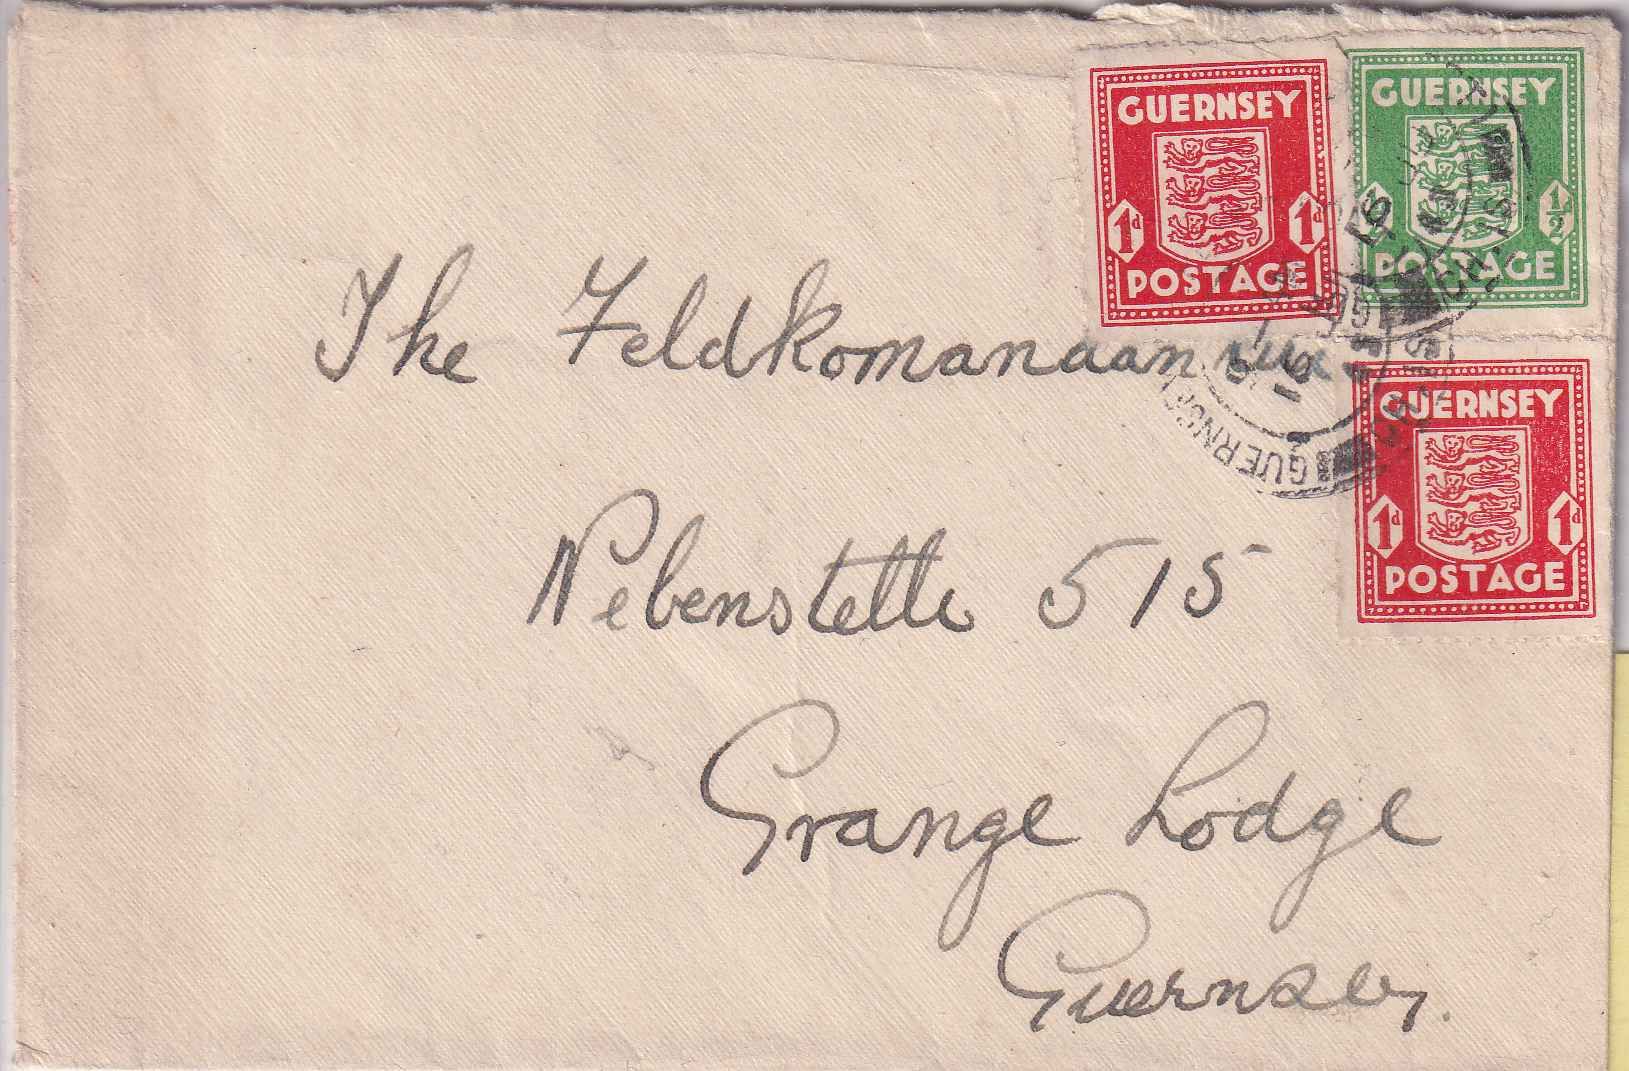 GUERNSEY
1d 1d
POSTAGE
GUERNSEY
½
POSTAGE
GUERNSEY
1d 1d
POSTAGE
GUERNSEY
The
Nebenstelle 515
Grange Lodge
Guernsey.